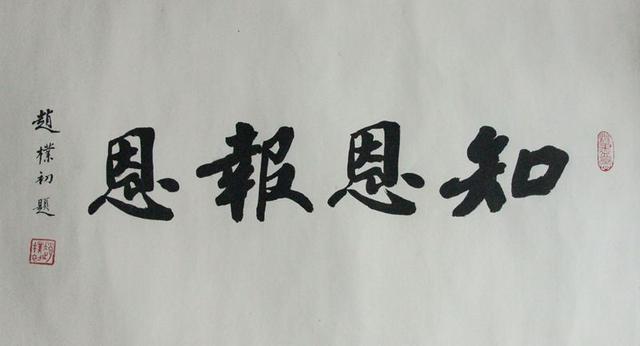 知恩報恩
趙樸初題